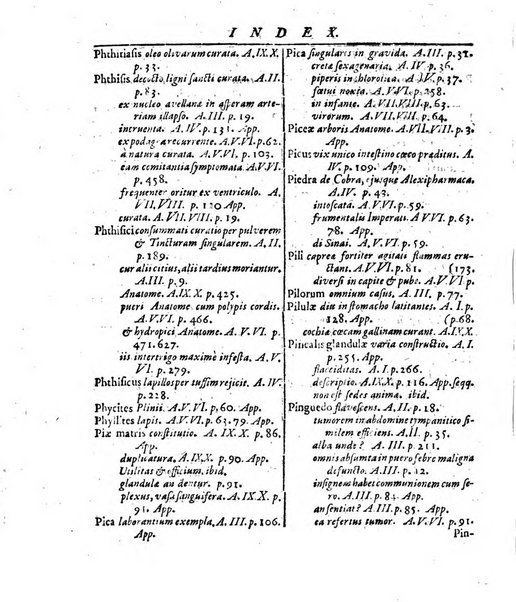 INDEX.
Phthitiasis oleo olivarum curata. A. IX. X.
p. 33.
Phthisis decocto, ligni sancti curata. A. II.
p. 83.
ex nucleo avellanæ in asperam arte-
riam illapso. A. III. p. 289.
incruenta. A. IV. p. 131. App.
ex podagra recurrente. A. V.VI. p. 62.
à natura curata. A. V.VI. p. 103.
eam comitantia symptomata. A. V VI.
p. 458.
frequenter oritur ex ventriculo. A.
VII. VIII. p. 120 App
curata. A. VII. VIII. p. 19.
Phthisici consummati curatio per pulverem
& Tincturam singularem. A. II.
p. 189.
cur alii citius, alii tardius moriantur.
A. III. p. 9.
Anatome. A. IX. X. p. 425.
pueri Anatome cum polypo cordis.
A. V.VI. p. 466.
& hydropici Anatome. A. V.VI. p.
471. 627.
iis intertrigo maximè infesta. A. V.
VI. p. 279.
Phthisicus lapillos per tussim rejicit. A. III.
p. 228.
Phycites Plinii. A. V.VI. p. 60. App.
Phyllites lapis. A. V.VI. p. 63. 79. App.
Piæ matris constitutio. A. IX. X. p. 86.
App.
duplicatura. A. IX. X. p. 90. App.
Utilitas & officium. ibid.
glandulæ an dentur. p. 91.
plexus, vasa sanguifera. A. IX. X. p.
91. App.
Pica laborantium exempla. A. III. p. 106.
App.
Pica singularis in gravida. A. III. p. 32.
cretæ in sexagenaria. A. IV. p. 36.
piperis in chlorotica. A. IV. p. 37.
fœtui noxia. A. V VI. p. 258.
in infante. A. VII. VIII. p. 63.
virorum. A. VII. VIII. p. 64.
Piceæ arboris Anatome. A. V VI. p. 3.
App.
Picus vix unico intestino cœco præditus. A.
IV. p. 109. App.
Piedra de Cobra, ejusque Alexipharmaca.
A. IV. p. 43.
intoscata. A. V.VI. p. 59.
frumentalis Imperati A. V.VI. p. 63.
78. App.
di Sinai. A. V.VI. p. 59.
Pili capræ fortiter agitati flammas eru-
ctant. A. V. VI. p. 81. (173.
diversi in capite & pube. A. V.VI. p.
Pilorum omnium casus. A. III. p. 77.
Pilulæ diu in stomacho latitantes. A. I. p.
128. App. (p. 68.
cochiæ cæcam gallinam curant. A. IX. X.
Pinealis glandulæ varia constructio. A. I.
p. 255. App.
flacciditas. A. I. p. 266.
descriptio. A. IX. X. p. 116. App. seqq.
non est sedes animæ. ibid.
Pinguedo flavescens. A. II. p. 18.
tumorem in abdomine tympanitico si-
milem efficiens. A. II. p. 35.
alba unde? A. III. p. 31.
omnis absumta in puero febre maligna
defuncto. A. III. p. 82.
insignem habet communionem cum se-
ro. A. III. p. 84. App.
an sentiat? A. III. p. 85. App.
ea refertus tumor. A. V.VI. p. 91.
Pin-